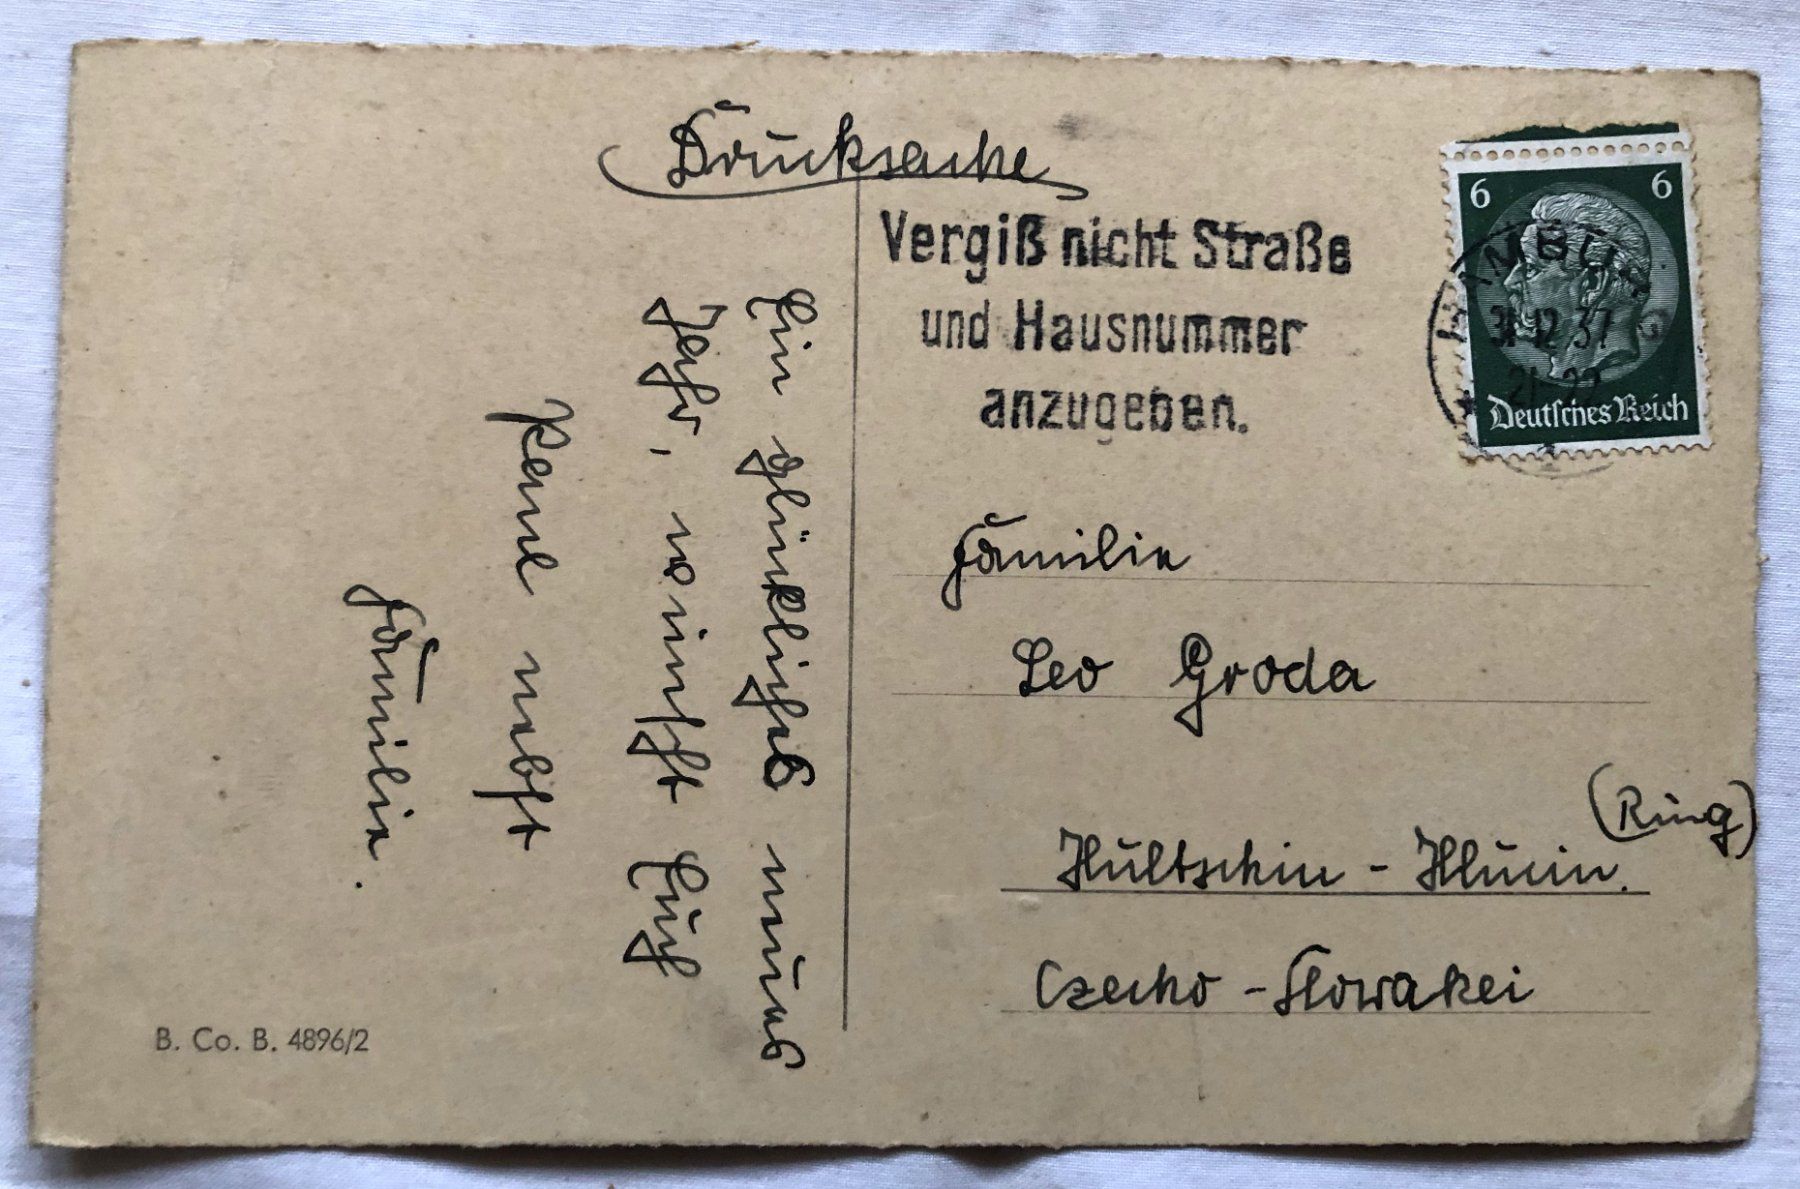 Drucksache
Vergiß nicht Straße
und Hausnummer
anzugeben.
6 6
HAMBURG
31.12.37
21-22
Deutsches Reich
Familie
Leo Groda
(Ring)
Hultschin - Hlucin.
Czecho - Slowakei
Ein glückliches neues
Jahr, wünscht Euch
Paul nebst
Familie.
B. Co. B. 4896/2